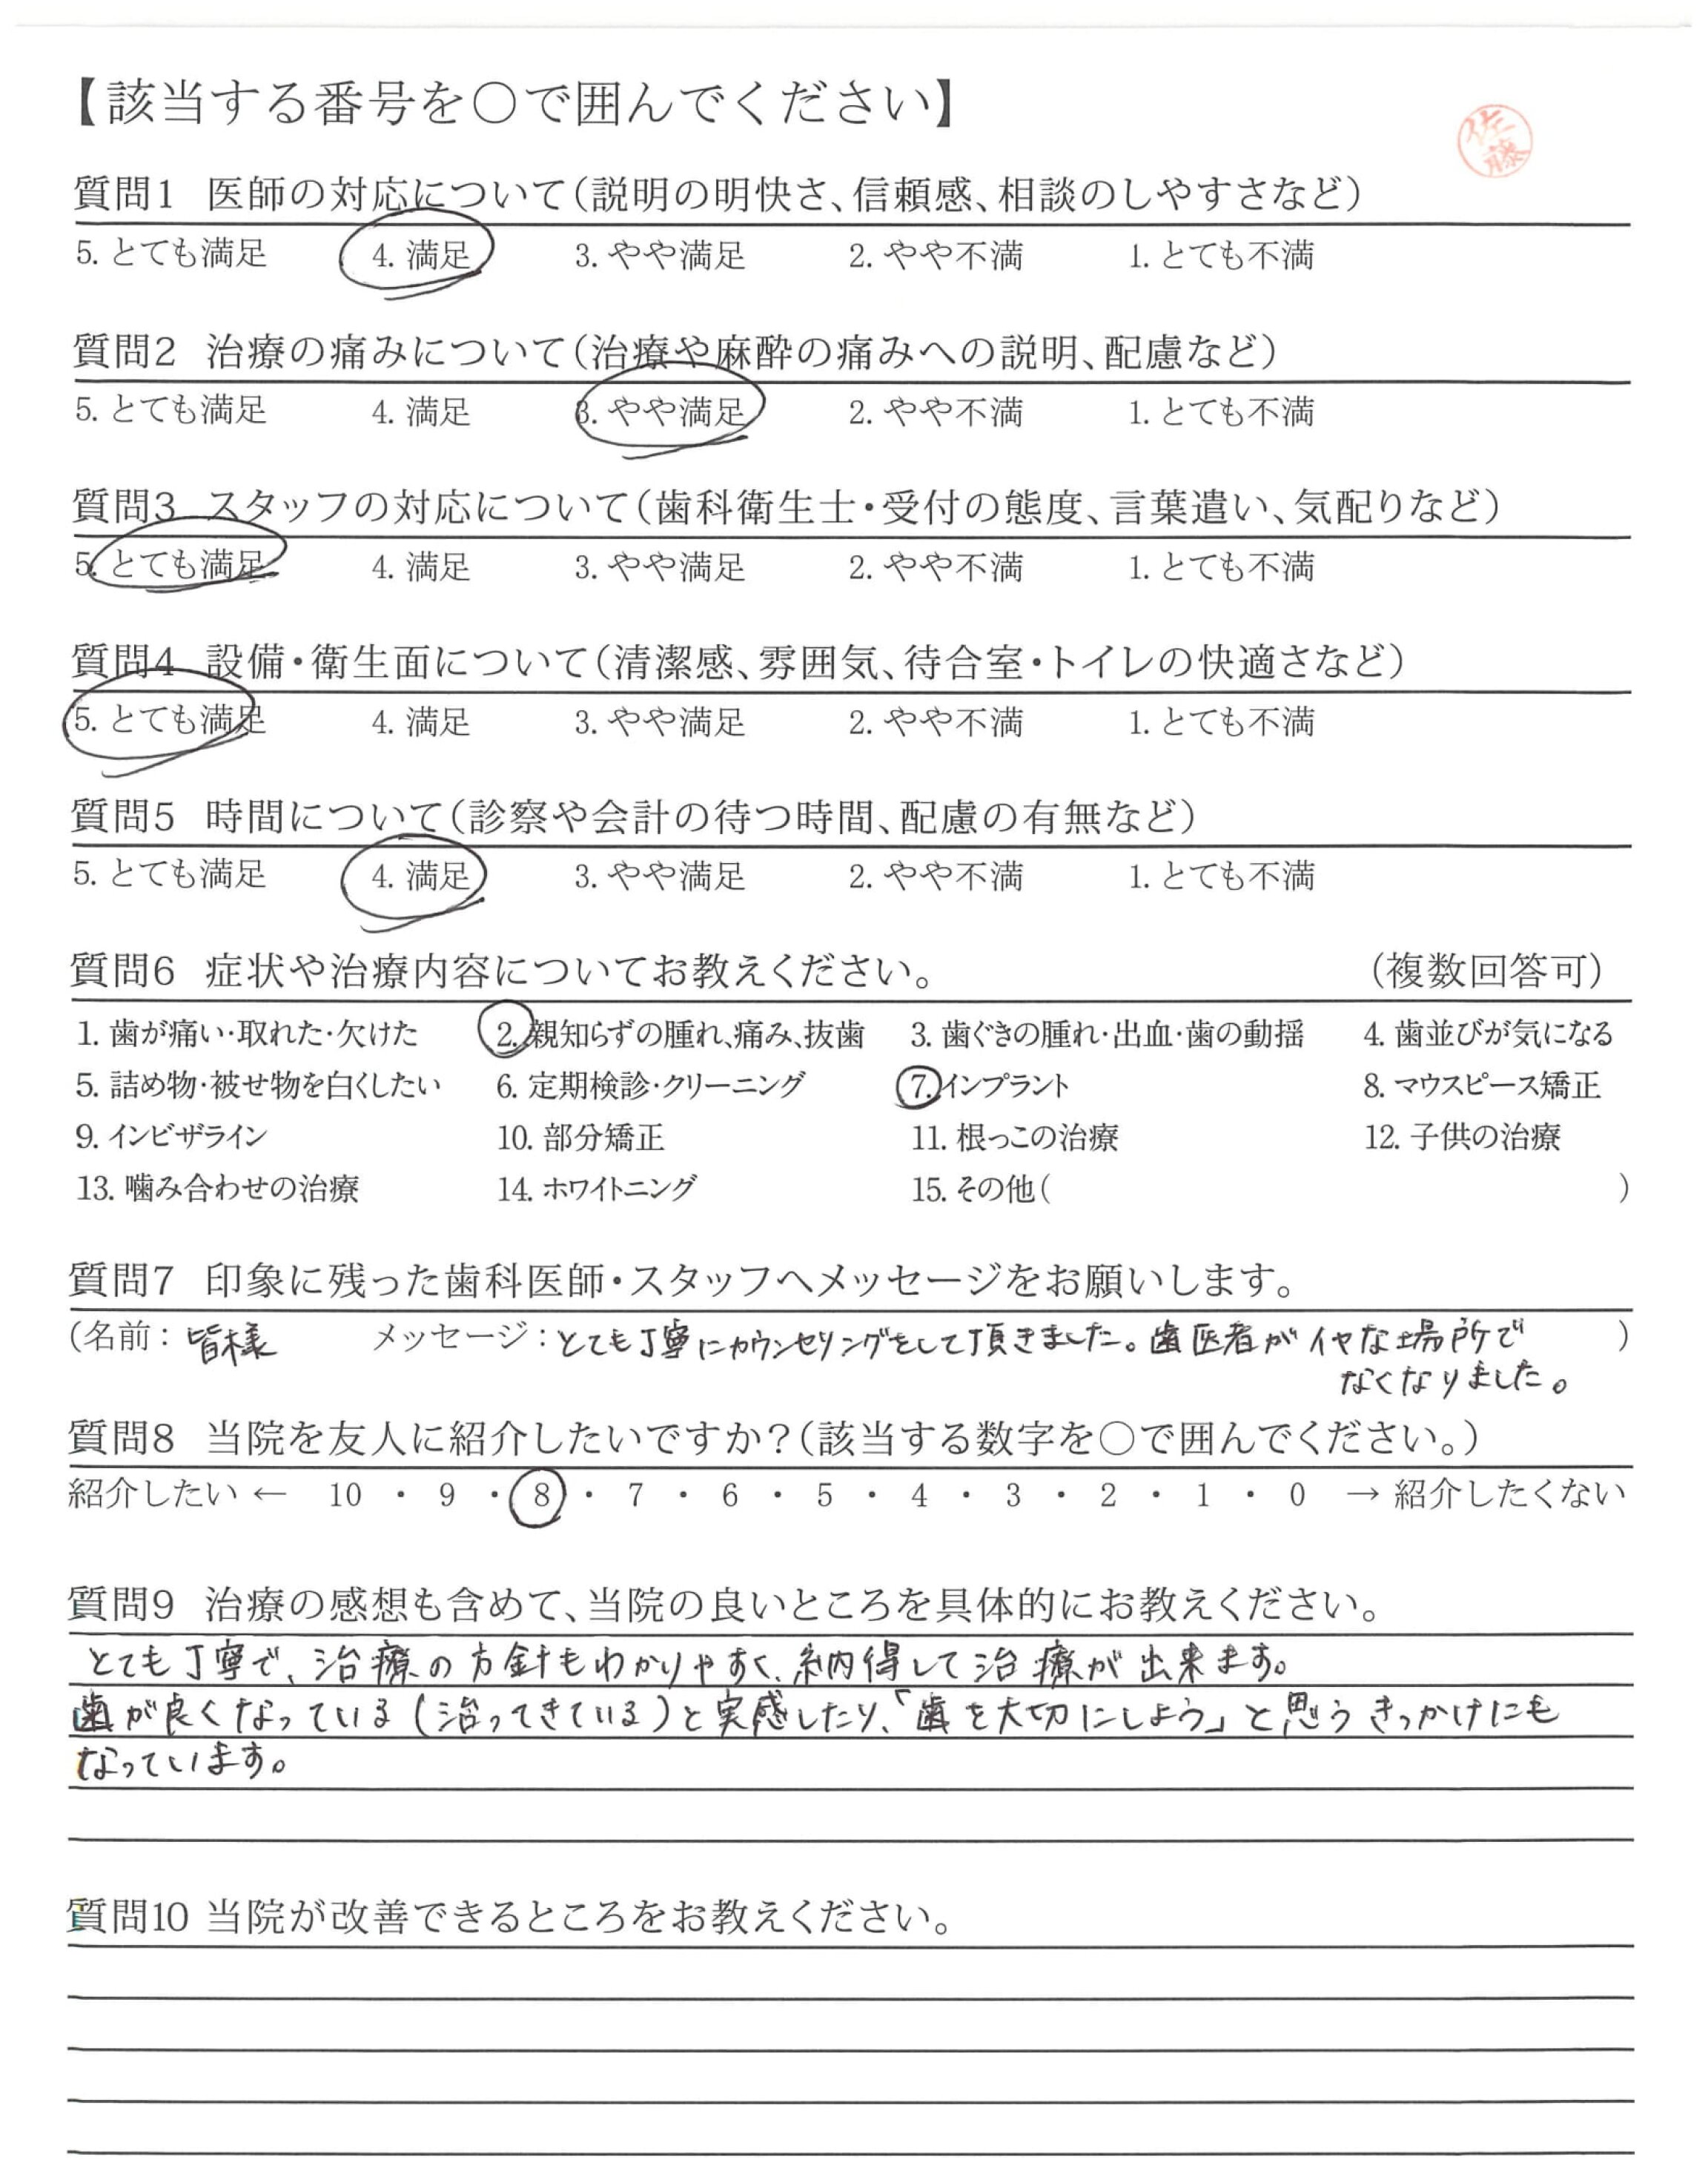 【該当する番号を○で囲んでください】
佐藤
質問1 医師の対応について(説明の明快さ、信頼感、相談のしやすさなど)
5. とても満足 4. 満足 3. やや満足 2. やや不満 1. とても不満
質問2 治療の痛みについて(治療や麻酔の痛みへの説明、配慮など)
5. とても満足 4. 満足 3. やや満足 2. やや不満 1. とても不満
質問3 スタッフの対応について(歯科衛生士・受付の態度、言葉遣い、気配りなど)
5. とても満足 4. 満足 3. やや満足 2. やや不満 1. とても不満
質問4 設備・衛生面について(清潔感、雰囲気、待合室・トイレの快適さなど)
5. とても満足 4. 満足 3. やや満足 2. やや不満 1. とても不満
質問5 時間について(診察や会計の待つ時間、配慮の有無など)
5. とても満足 4. 満足 3. やや満足 2. やや不満 1. とても不満
質問6 症状や治療内容についてお教えください。 (複数回答可)
1. 歯が痛い・取れた・欠けた 2. 親知らずの腫れ、痛み、抜歯 3. 歯ぐきの腫れ・出血・歯の動揺 4. 歯並びが気になる
5. 詰め物・被せ物を白くしたい 6. 定期検診・クリーニング 7. インプラント 8. マウスピース矯正
9. インビザライン 10. 部分矯正 11. 根っこの治療 12. 子供の治療
13. 噛み合わせの治療 14. ホワイトニング 15. その他( )
質問7 印象に残った歯科医師・スタッフへメッセージをお願いします。
(名前: 皆様 メッセージ: とても丁寧にカウンセリングをして頂きました。歯医者がイヤな場所で )
なくなりました。
質問8 当院を友人に紹介したいですか?(該当する数字を○で囲んでください。)
紹介したい ← 10 ・ 9 ・ 8 ・ 7 ・ 6 ・ 5 ・ 4 ・ 3 ・ 2 ・ 1 ・ 0 → 紹介したくない
質問9 治療の感想も含めて、当院の良いところを具体的にお教えください。
とても丁寧で、治療の方針もわかりやすく、納得して治療が出来ます。
歯が良くなっている(治ってきている)と実感したり、「歯を大切にしよう」と思うきっかけにも
なっています。
質問10 当院が改善できるところをお教えください。